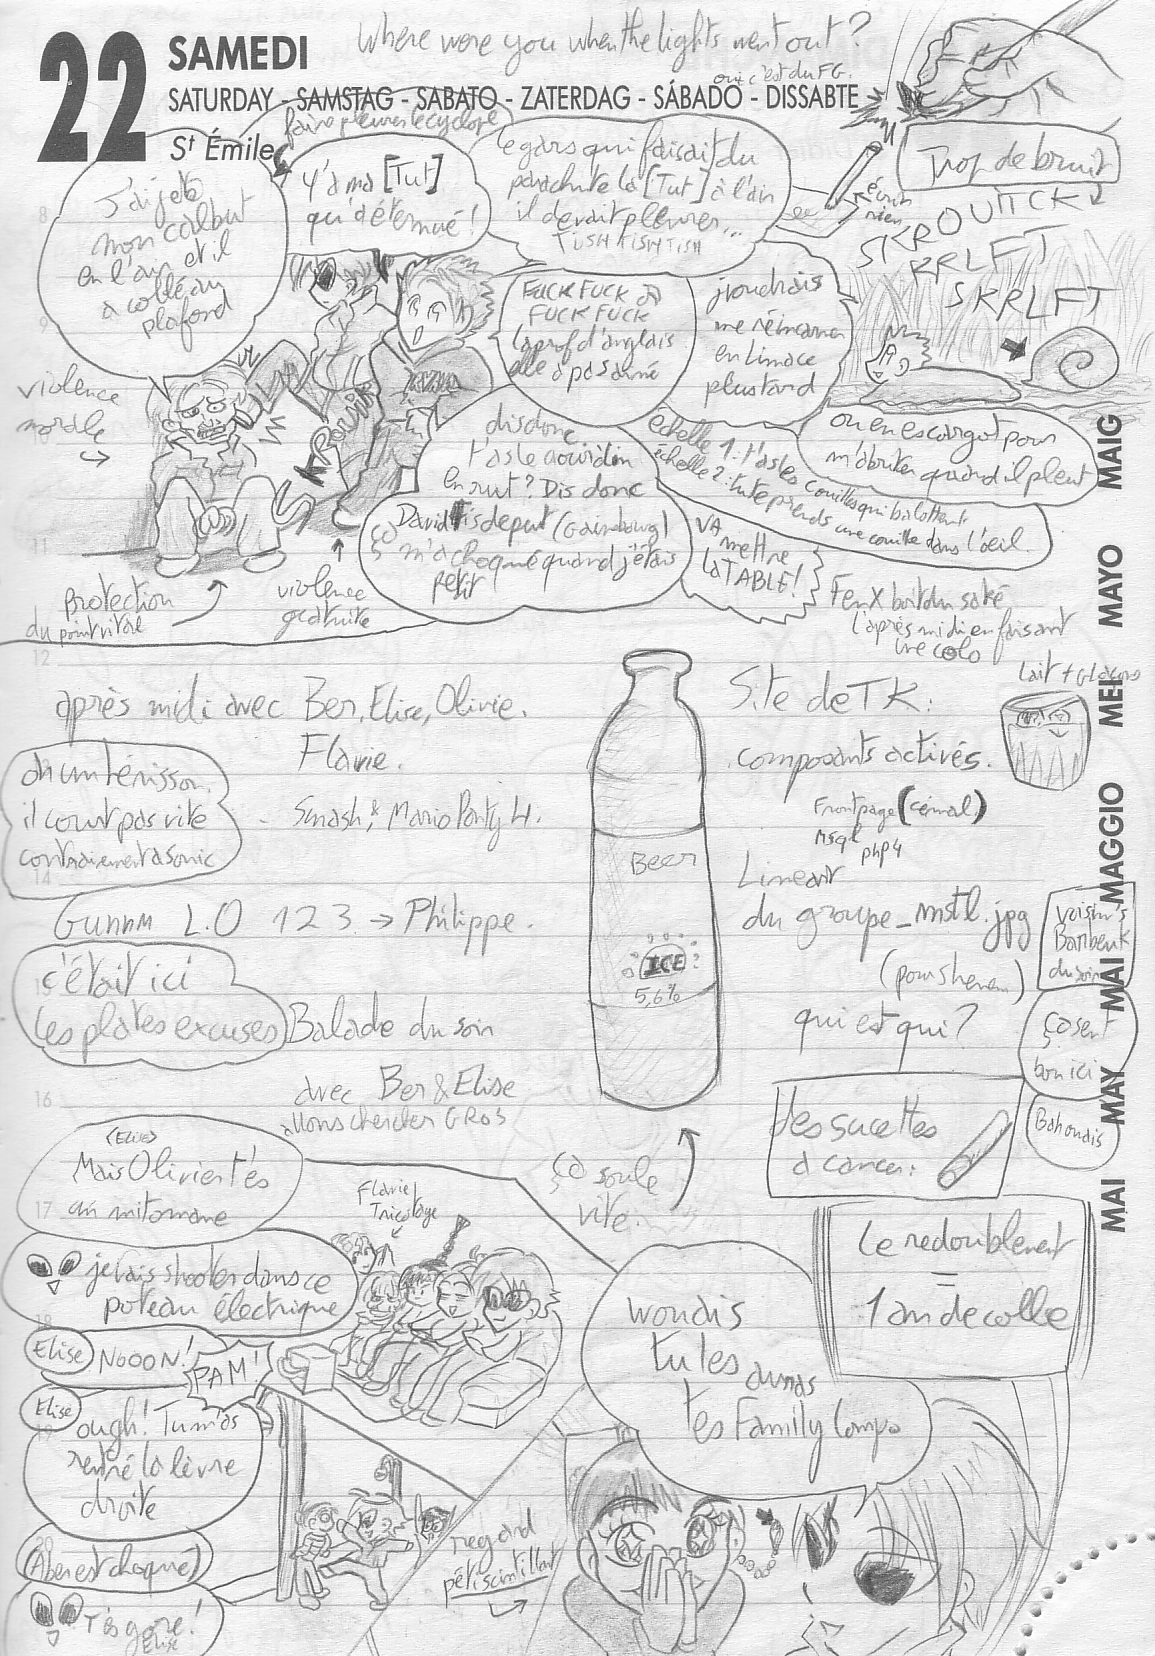 22
SAMEDI
SATURDAY - SAMSTAG - SABATO - ZATERDAG - SÁBADO - DISSABTE
St Émile
Where were you when the lights went out?
oui c'est du FG.
faire pleurer le cyclope
J'ai jeté
mon calbut
en l'air et il
a collé au
plafond
Y'a ma [Tut]
qu'a éternué!
le gars qui faisait du
parachute la [Tut] à l'air
il devait pleurer...
TUSH TISH TISH
Trop de bruit
SKROUITCK
RRLFT
SKRLFT
FUCK FUCK
FUCK FUCK
la prof d'anglais
elle a pas aimé
j'voudrais
me réincarner
en Limace
plus tard
ou en escargot pour
m'abriter quand il pleut
violence
morale
KROUIK
dis donc
t'as le gourdin
en rut? Dis donc
David
(Gainsbourg)
ça m'a choqué quand j'étais
petit
échelle 1: t'as les couilles qui balottent.
échelle 2: tu te prends une couille dans l'oeil.
VA
mettre
la TABLE!
protection
du point vital
violence
gratuite
FenX boit du saké
l'après midi en faisant
une colo
Lait + Glaçons
après midi avec Ber, Elise, Olivier.
Flavie.
Smash, & Mario Party 4.
oh un hérisson,
il court pas vite
contrairement a sonic
Gunnm L.O 1 2 3 → Philippe.
c'était ici
les plates excuses
Balade du soir
avec Ber & Elise
allons chercher GROS
Beer
ICE
5,6%
ça soule
vite.
Site de TK:
composants activés.
Frontpage
Msql
php4
Lineart
du groupe_mstl.jpg
qui est qui?
voisin's
Barbeuk
du soir
ça sent
bon ici
des sucettes
a cancer:
(Elise)
Mais Olivier t'es
un mitomane
je vais shooter dans ce
poteau électrique
Elise
NOOON!
PAM!
Elise
ough! Tu m'as
la lèvre
droite
(Aber est choqué)
T'es gore!
Elise
Flavie
Tricotage
Le redoublement
=
1 an de colle
tu les
tes Familly Compo
regard
pétiscintillant
MAI MAY MAI MAGGIO MEI MAYO MAIG
8
9
10
11
12
13
14
15
16
17
18
19
20